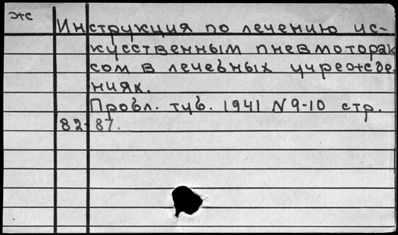 эж
Инструкция по лечению ис-
кусственным пневмоторак
сом в лечебных учрежде.
нияк.
Пробл. туб. 1941 N9-10 стр.
82-87.